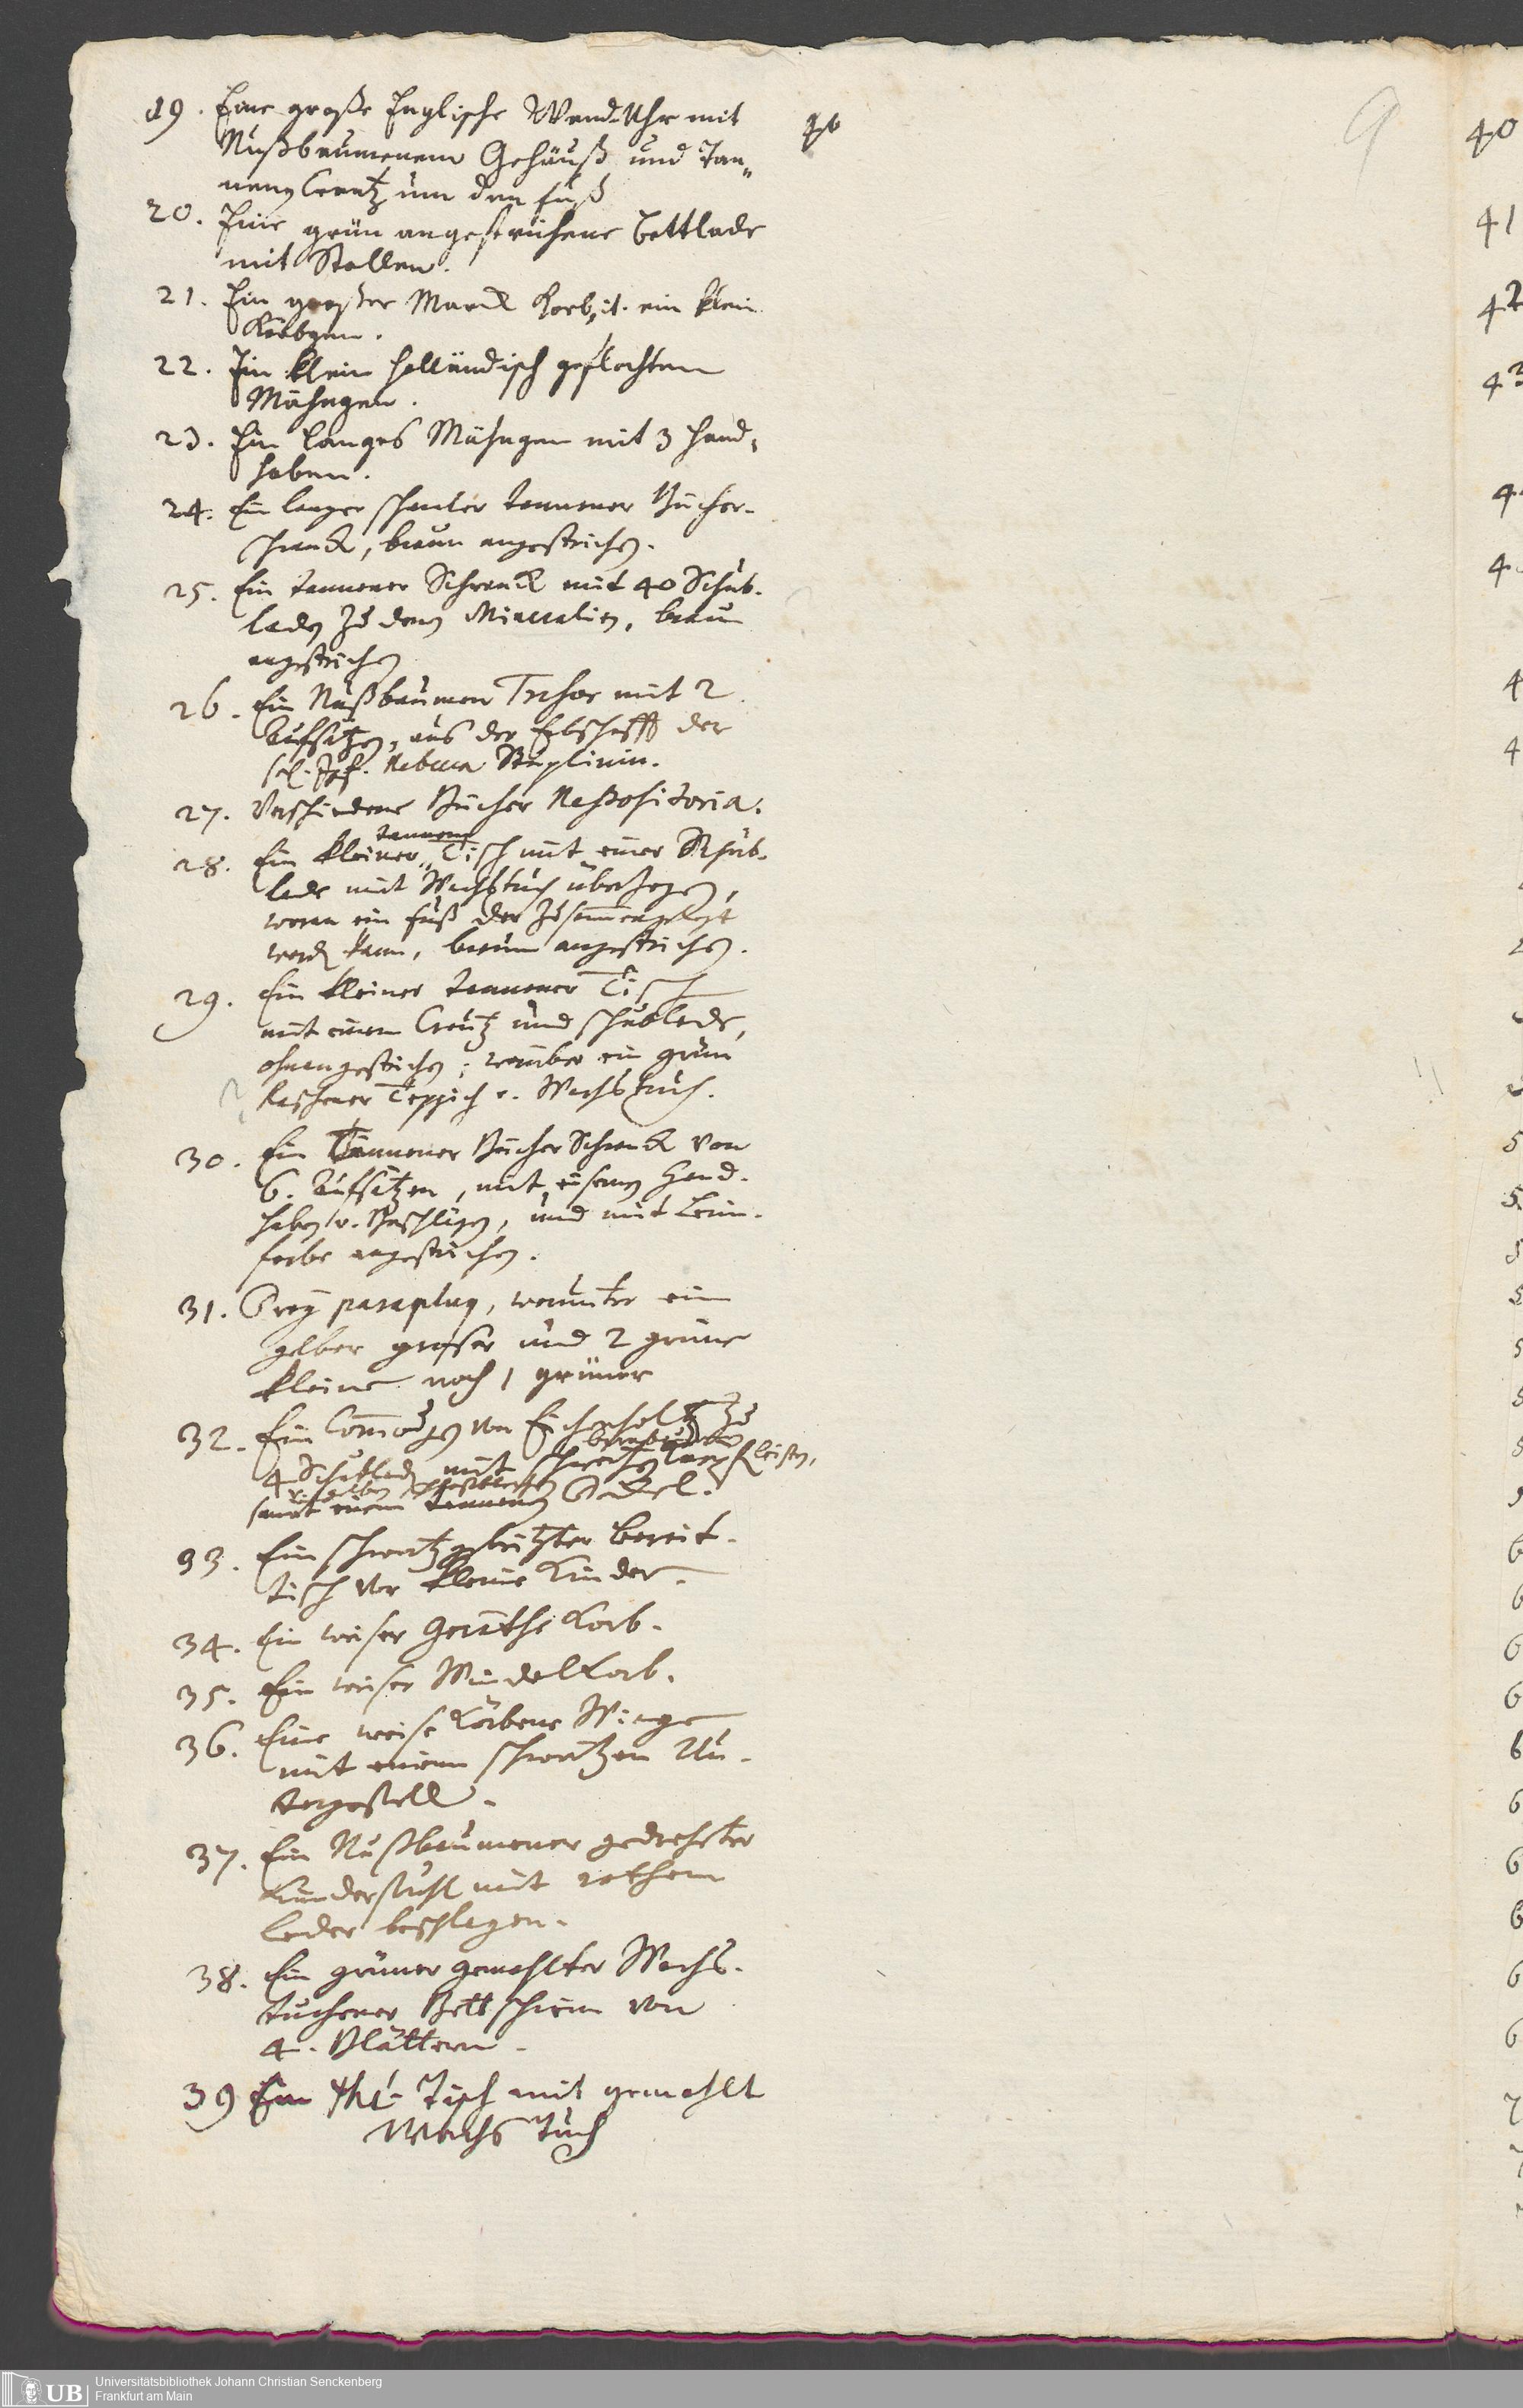 19. Eine große Englische Wand-Uhr mit
Nußbaumenem Gehäuß und Tan„
neng Creutz um den fuß
20. Eine grün angestrichene Bettlade
mit Stollen.
21. Ein großer Marck Korb, it. ein klein
Körbgen.
22. Ein klein holländisch geflochten
Mähngen.
23. Ein langes Mähngen mit 3 Hand„
haben.
24. Ein langer schmaler tannener Bücher-
schranck, braun angestrichen.
25. Ein tannener Schranck mit 40 Schub-
laden zu denen Mineralien, braun
angestrichen
26. Ein Nußbaumen Tresor mit 2
Aufsätzen, aus der Erbschafft der
sel. Jgf. Rebecca
27. Verschiedene Bücher Repositoria.
tannener
28. Ein kleiner Tisch mit einer Schub-
lade mit Wachstuch überzogen,
woran ein fuß der zusammengelegt
werden kann, braun angestrichen.
29. Ein kleiner tannener Tisch
mit einem Creutz und schublade,
ohnangestrichen; worüber ein grün
Teppich v. Wachstuch.
30. Ein Tannener Bücher Schranck von
6. Aufsätzen, mit eisernen Hand-
haben v. Beschlägen, und mit Leim-
farbe angestrichen.
31. Drey parapluy, worunter ein
gelber großer und 2 grüne
kleine noch 1 grüner
32. Ein Commodgen von Eichenholtz zu
4 Schubladen mit schwartzen Leisten,
v. gelben
samt einem tannenen Deckel.
33. Ein schwartz gebeitzter Bereit-
tisch vor kleine Kinder.
34. Ein weiser Geräthe Korb.
35. Ein weiser Windel Korb.
36. Eine weise Körbene Wiege
mit einem schwartzen Un-
tergestell.
37. Ein Nußbaumener gedrehter
Kinderstuhl mit rothem
Leder beschlagen.
38. Ein grüner gemahlter Wachs-
tuchener Bettschirm von
4. Blättern.
39 Ein thé-Tisch mit gemahlt
Wachs Tuch
9
40
41
42
Universitätsbibliothek Johann Christian Senckenberg
Frankfurt am Main
UB